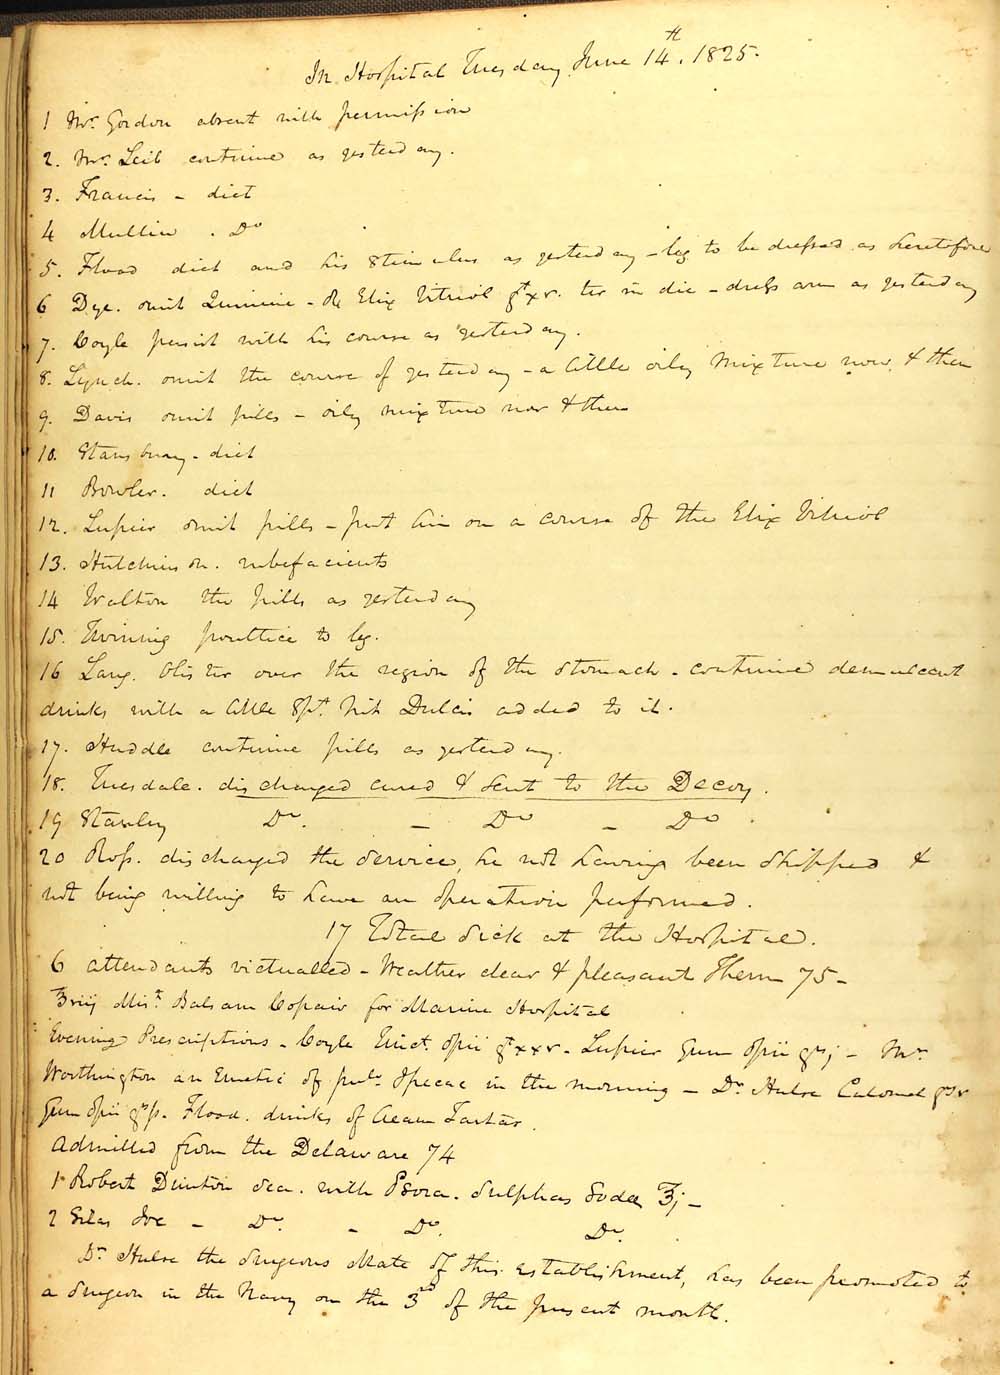 In Hospital Tuesday June 14th. 1825.
1 Mr. Gordon absent with permission
2. Mr. Leib continue as yesterday.
3. Francis - diet
4 Mullin . Do
5. Flood diet and his stimulus as yesterday - leg to be dressed as heretofore
6 Dye. omit Quinine - Elix Vitriol gtxv. ter in die - dress arm as yesterday
7. Coyle persist with his course as yesterday.
8. Lynch. omit the course of yesterday - a little oily mixture now & then
9. Davis omit pills - oily mixture now & then
10. Stansbury - diet
11 Bowler. diet
12. Lupier omit pills - put him on a course of the Elix Vitriol
13. Hutchinson. rubefacients
14 Walton the pills as yesterday
15. Twining poultice to leg.
16 Lang. blister over the region of the stomach - continue demulcent
drinks with a little Spt. Nit Dulcis added to it.
17. Huddle continue pills as yesterday.
18. Tuesdale. discharged cured & sent to the Decoy.
19 Stanley Do. - Do - Do.
20 Ross. discharged the service, he not having been shipped &
not being willing to have an operation performed.
17 Total sick at the Hospital.
6 attendants victualled - Weather clear & pleasant Therm 75 -
℥viij Mist. Balsam Copaiv for Marine Hospital
Evening Prescriptions - Coyle Tinct. Opii gtxxv - Lupier Gum Opii grj - Mr.
Worthington an Emetic of pulv Ipecac in the morning - Dr. Hulse Calomel grsv
Gum Opii grss. Flood. drinks of Cream Tartar.
Admitted from the Delaware 74
1 Robert Dunton sea. with Psora. Sulphas Sodae ℥j -
2 Silas Ive - Do. - Do. Do.
Dr. Hulse the Surgeons Mate of this establishment, has been promoted to
a Surgeon in the Navy on the 3rd of the present month.